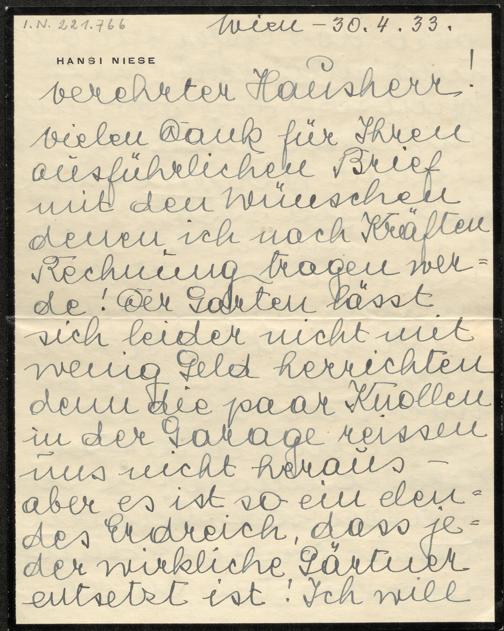 I.N. 221.766
Wien - 30.4.33.
HANSI NIESE
verehrter Hausherr!
vielen Dank für Ihren
ausführlichen Brief
mit den Wünschen
denen ich nach Kräften
Rechnung tragen wer=
de! Der Garten lässt
sich leider nicht mit
wenig Geld herrichten
denn die paar Knollen
in der Garage reissen
uns nicht heraus -
aber es ist so ein elen=
des Erdreich, dass je=
der wirkliche Gärtner
entsetzt ist! Ich will